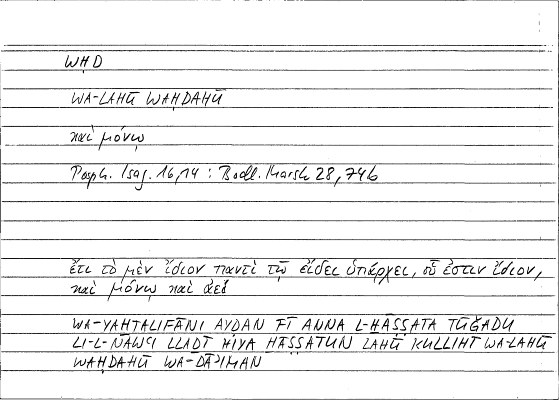 WḤD
WA-LAHŪ WAḤDAHŪ
καὶ μόνῳ
Porph. Isag. 16,14 : Bodl. Marsh 28, 74b
ἔτι τὸ μὲν ἴδιον παντὶ τῷ εἴδει ὑπάρχει, οὗ ἐστιν ἴδιον,
καὶ μόνῳ καὶ ἀεί
WA-YAḪTALIFĀNI AYḌAN FĪ ANNA L-ḪĀṢṢATA TŪǦADU
LI-L-NAWʿI LLAḎĪ HIYA ḪĀṢṢATUN LAHŪ KULLIHĪ WA-LAHŪ
WAḤDAHŪ WA-DĀʾIMAN